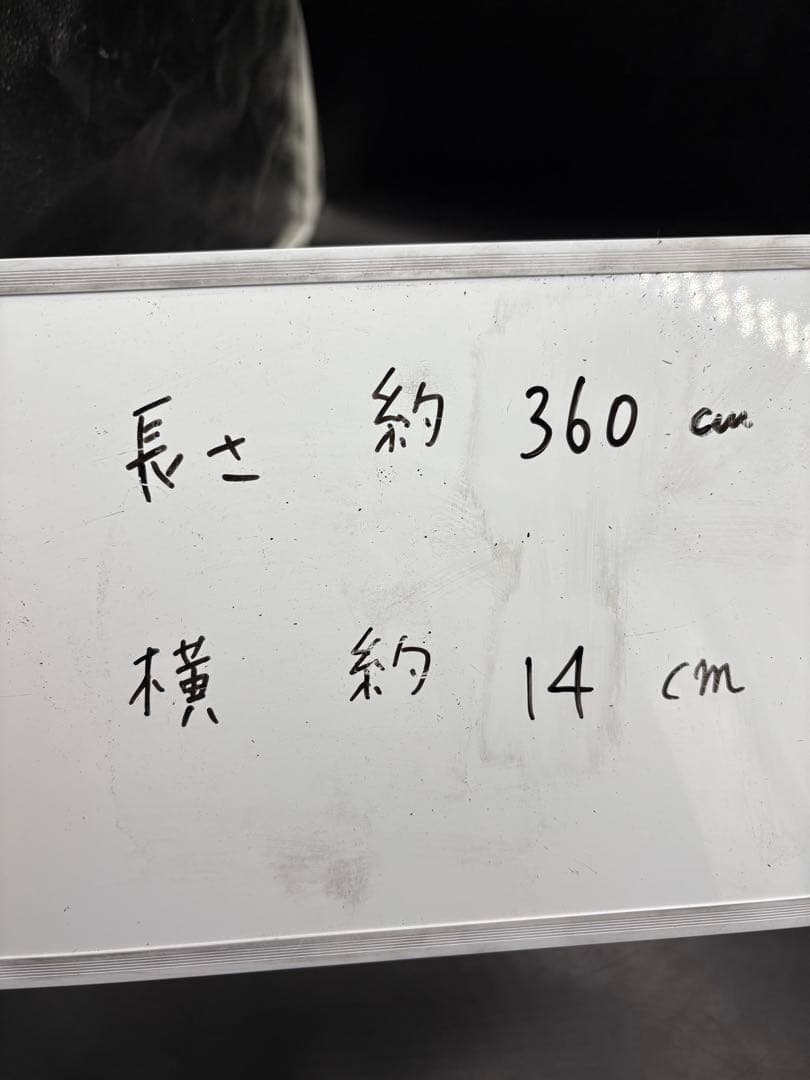 長さ 約 360 cm
横 約 14 cm